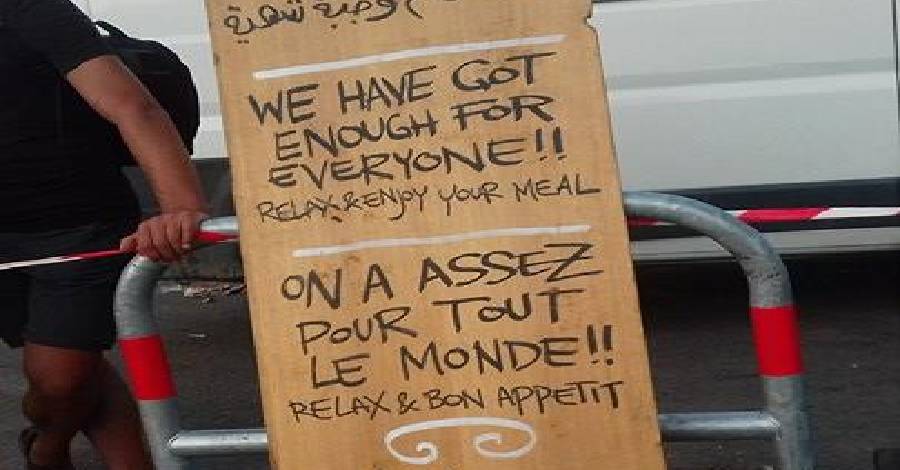 وجبة شهية
WE HAVE GOT
ENOUGH FOR
EVERYONE!!
RELAX & ENJOY YOUR MEAL
ON A ASSEZ
POUR TOUT
LE MONDE!!
RELAX & BON APPETIT